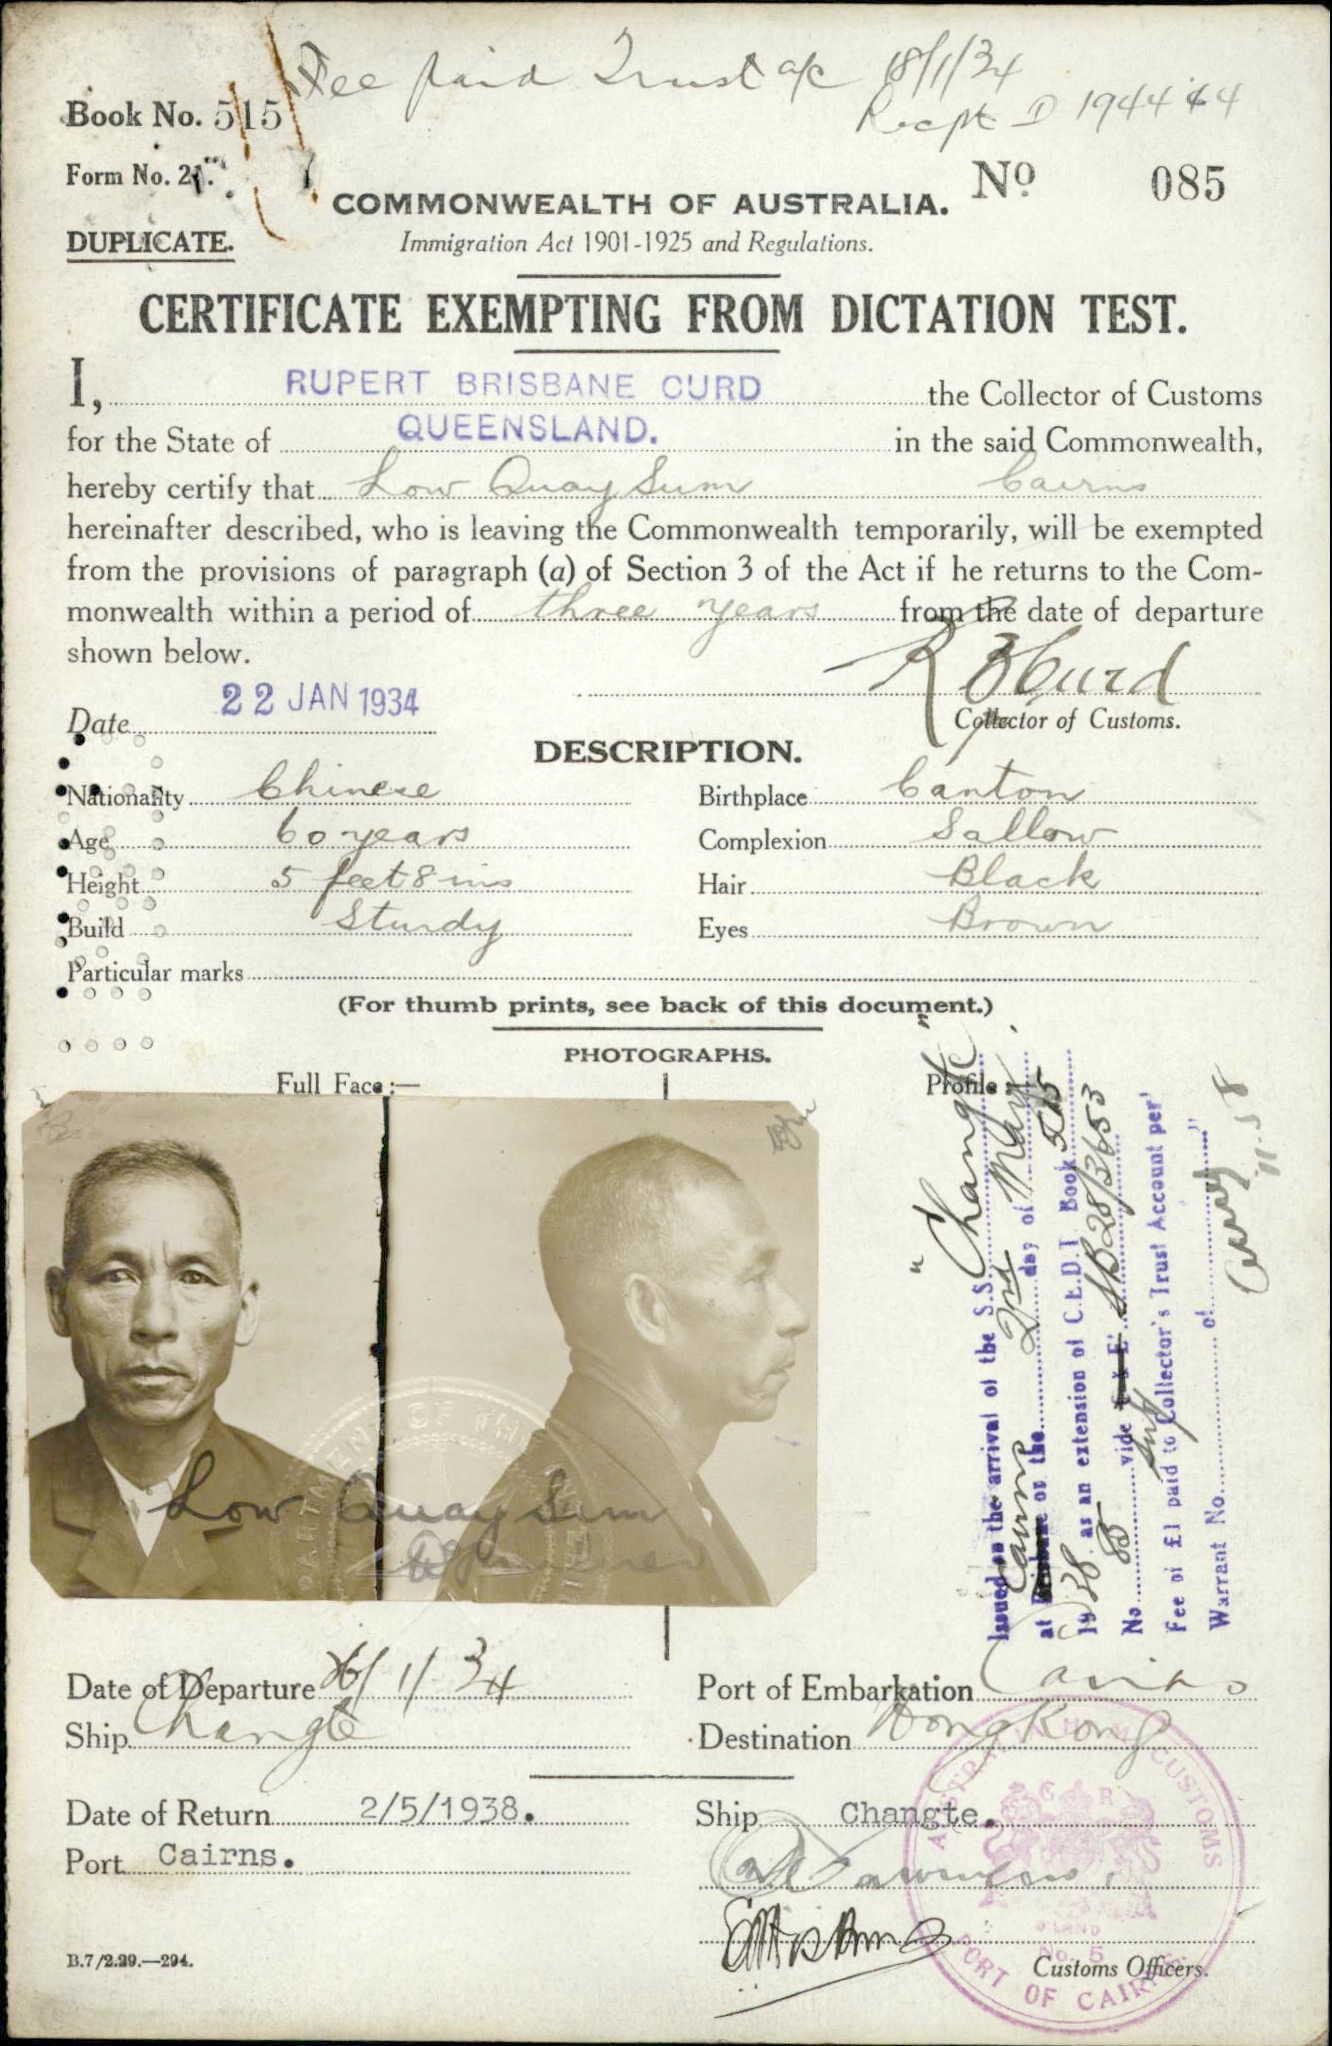 Fee paid Trust a/c 18/1/34
Recpt D 194444
Book No. 515
Form No. 21.
No 085
COMMONWEALTH OF AUSTRALIA.
DUPLICATE.
Immigration Act 1901-1925 and Regulations.
CERTIFICATE EXEMPTING FROM DICTATION TEST.
I, RUPERT BRISBANE CURD the Collector of Customs
for the State of QUEENSLAND. in the said Commonwealth,
hereby certify that Low Quay Sum Cairns
hereinafter described, who is leaving the Commonwealth temporarily, will be exempted
from the provisions of paragraph (a) of Section 3 of the Act if he returns to the Com-
monwealth within a period of three years from the date of departure
shown below.
R B Curd
Date 22 JAN 1934
Collector of Customs.
DESCRIPTION.
Nationality Chinese Birthplace Canton
Age 60 years Complexion Sallow
Height 5 feet 8 ins Hair Black
Build Sturdy Eyes Brown
Particular marks
(For thumb prints, see back of this document.)
PHOTOGRAPHS.
Full Face:— Profile:—
Low Quay Sum
Issued on the arrival of the S.S. "Changte"
at Brisbane Cairns on the 2nd day of May
1938 as an extension of C.E.D.T. Book 515
No 85 vide C & E SB28/3653
Fee of £1 paid to Collector's Trust Account per
Warrant No. of
Date of Departure 26/1/34 Port of Embarkation Cairns
Ship Changte Destination Hong Kong
Date of Return 2/5/1938. Ship Changte.
Port Cairns.
AUSTRALIA H.M. CUSTOMS
G R
QLAND
No. 5
PORT OF CAIRNS
B.7/2.29.—294.
Customs Officers.